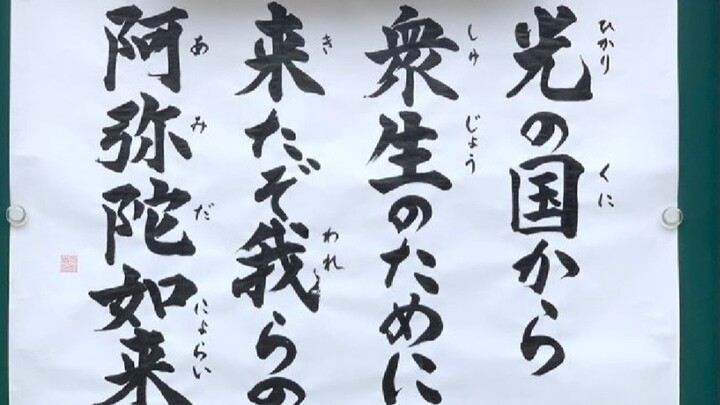 光の国から
衆生のために
来たぞ我らの
阿弥陀如来
ひかり
くに
しゅじょう
き
われ
あみだにょらい